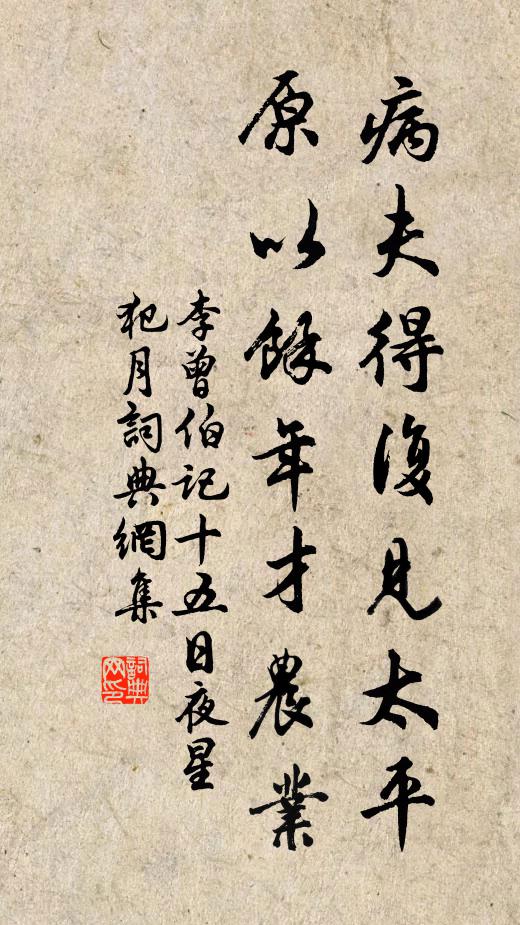 病夫得復見太平
原以餘年才農業
李曾伯記十五日夜星
犯月詞典網集
詞典
网印